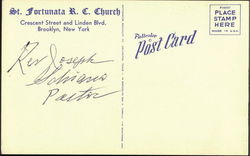 St. Fortunata R. C. Church
Crescent Street and Linden Blvd.
Brooklyn, New York
Rev Joseph
Pastor
Post Card
POSTCARD
PLACE
STAMP
HERE
MADE IN U.S.A.